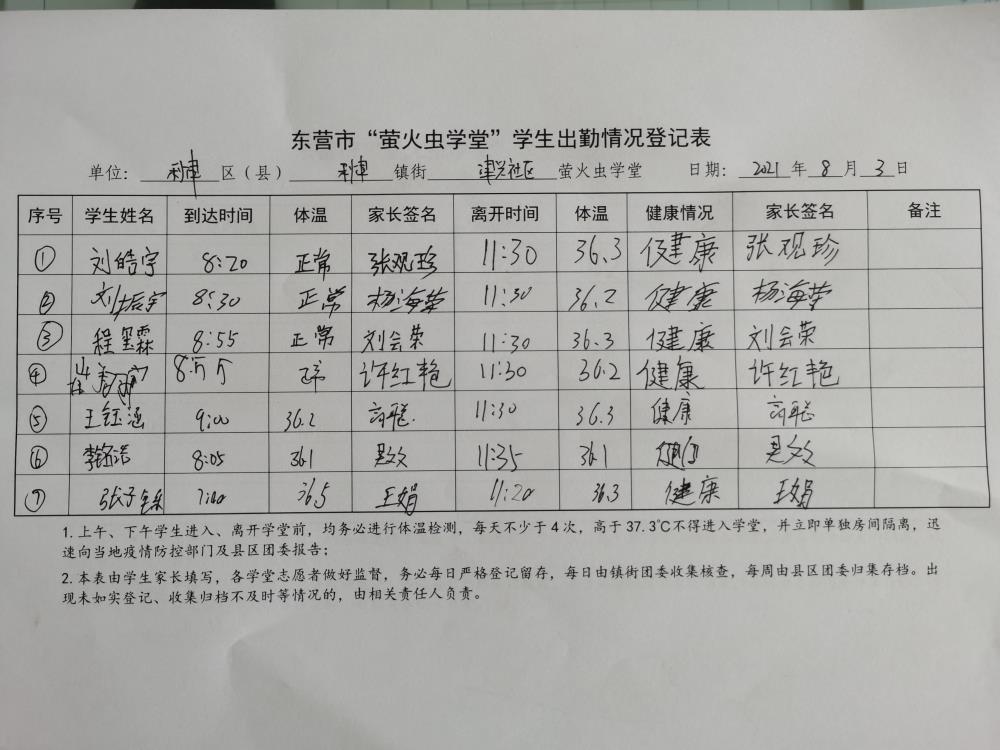 东营市“萤火虫学堂”学生出勤情况登记表
单位： 利津 区（县） 利津 镇街 津兴社区 萤火虫学堂 日期： 2021 年 8 月 3 日
序号 学生姓名 到达时间 体温 家长签名 离开时间 体温 健康情况 家长签名 备注
① 刘皓宇 8:20 正常 张观珍 11:30 36.3 健康 张观珍
② 刘振宇 8:30 正常 杨海荣 11:30 36.2 健康 杨海荣
③ 程玺霖 8:55 正常 刘会荣 11:30 36.3 健康 刘会荣
④ 8:55 正常 许红艳 11:30 36.2 健康 许红艳
⑤ 王钰涵 9:00 36.2 11:30 36.3 健康
⑥ 李铭浩 8:05 36.1 11:35 36.1 健康
⑦ 张子 7:40 36.5 王娟 11:20 36.3 健康 王娟
1. 上午、下午学生进入、离开学堂前，均务必进行体温检测，每天不少于 4 次，高于 37.3℃不得进入学堂，并立即单独房间隔离，迅
速向当地疫情防控部门及县区团委报告；
2. 本表由学生家长填写，各学堂志愿者做好监督，务必每日严格登记留存，每日由镇街团委收集核查，每周由县区团委归集存档。出
现未如实登记、收集归档不及时等情况的，由相关责任人负责。